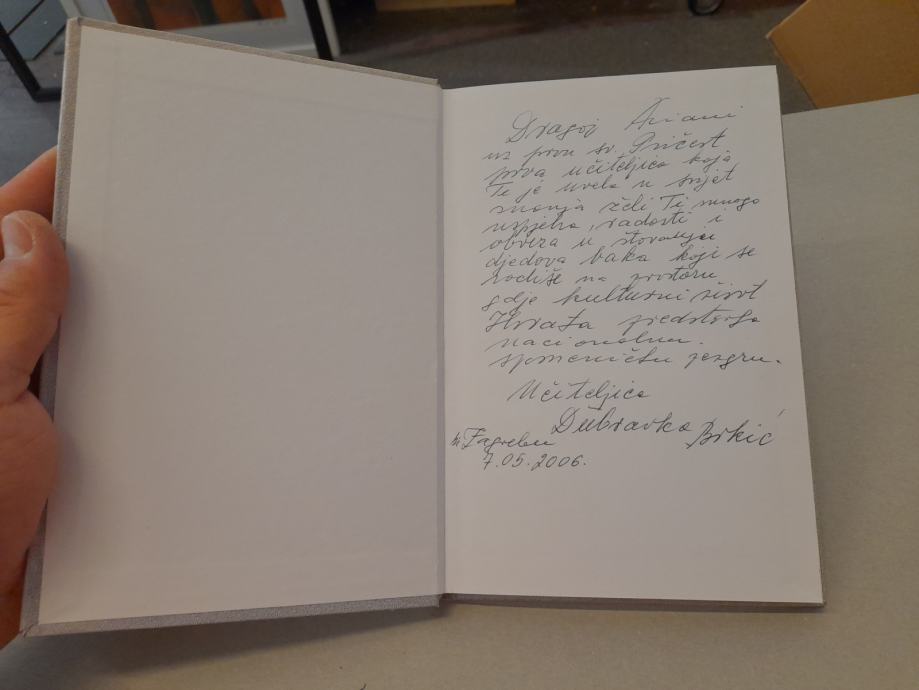 Dragoj Ariani
uz prvu sv. Pričest
prva učiteljica koja
Te je uvela u svijet
znanja želi Ti mnogo
uspjeha, radosti i
obveza u štovanju
djedova baka koji se
rodiše na prostoru
gdje kulturni život
Hrvata predstavlja
nacionalnu
spomeničku jezgru.
Učiteljica
Dubravka Brkić
u Zagrebu
7.05.2006.